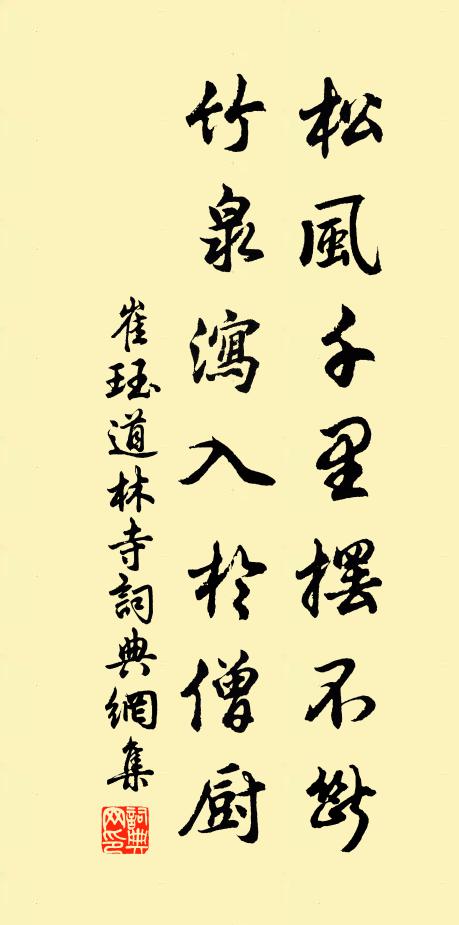 松風千里擺不斷
竹泉瀉入於僧厨
崔珏道林寺詞典網集
詞典网印